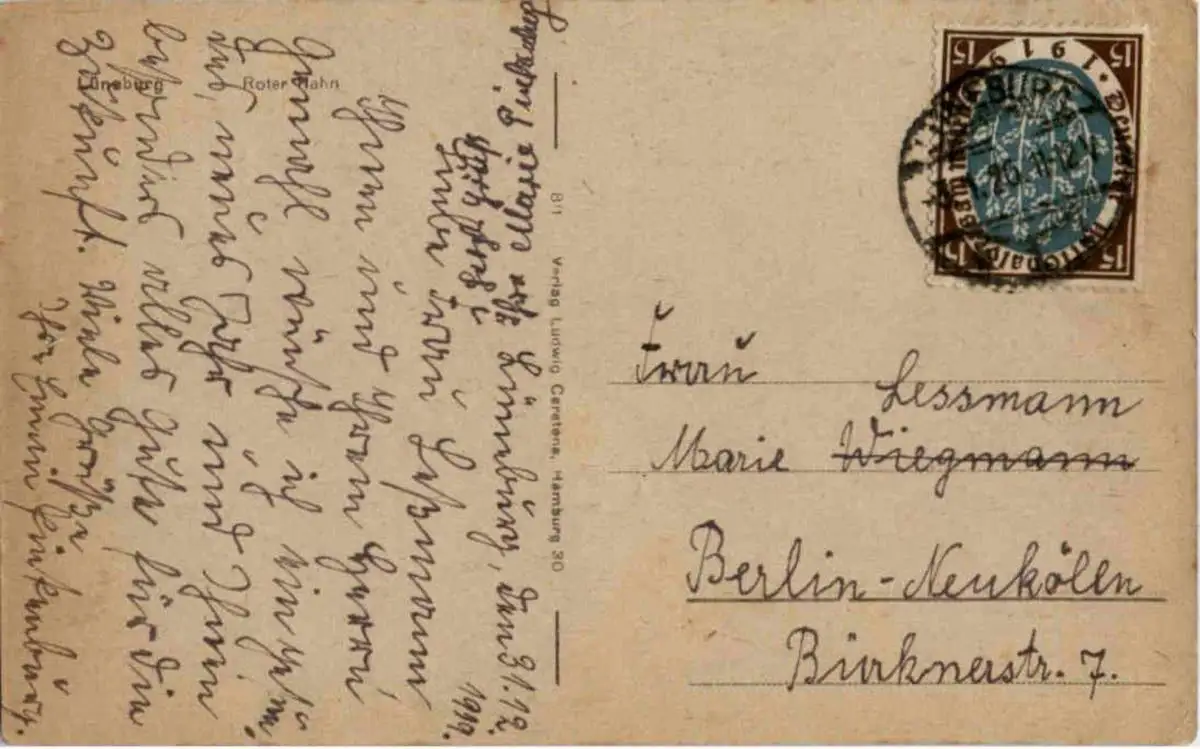 Lüneburg
Roter Hahn
Lüneburg, den 31.12.
1919.
Liebe Frau Leßmann
Ihnen und Ihrem Herrn
Gemahl wünsche ich ein
neues Jahr und Ihnen
besonders alles Gute für die
Zukunft. Viele Grüße
Ihre
Marie
B/1 Verlag Ludwig Carstens, Hamburg 30
15 15 15 15
1919 Deutsche Nationalversammlung
1.20. 11-12 V
Frau
Lessmann
Marie Wiegmann
Berlin-Neukölln
Bürknerstr. 7.